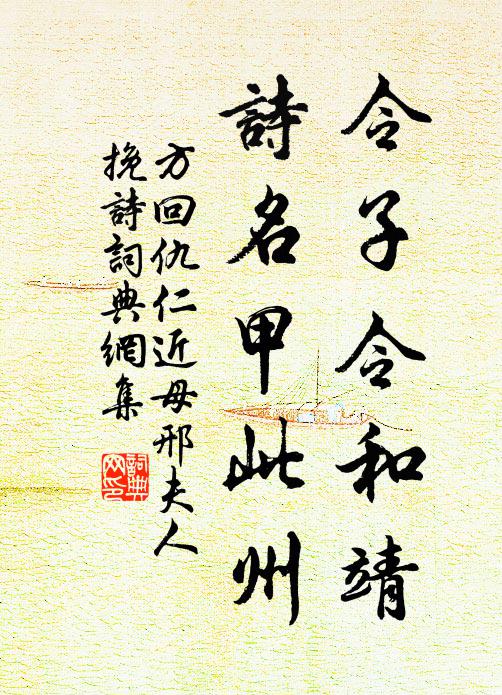 令子令和靖
詩名甲此州
方回仇仁近母邢夫人
挽詩詞典網集
詞典網印